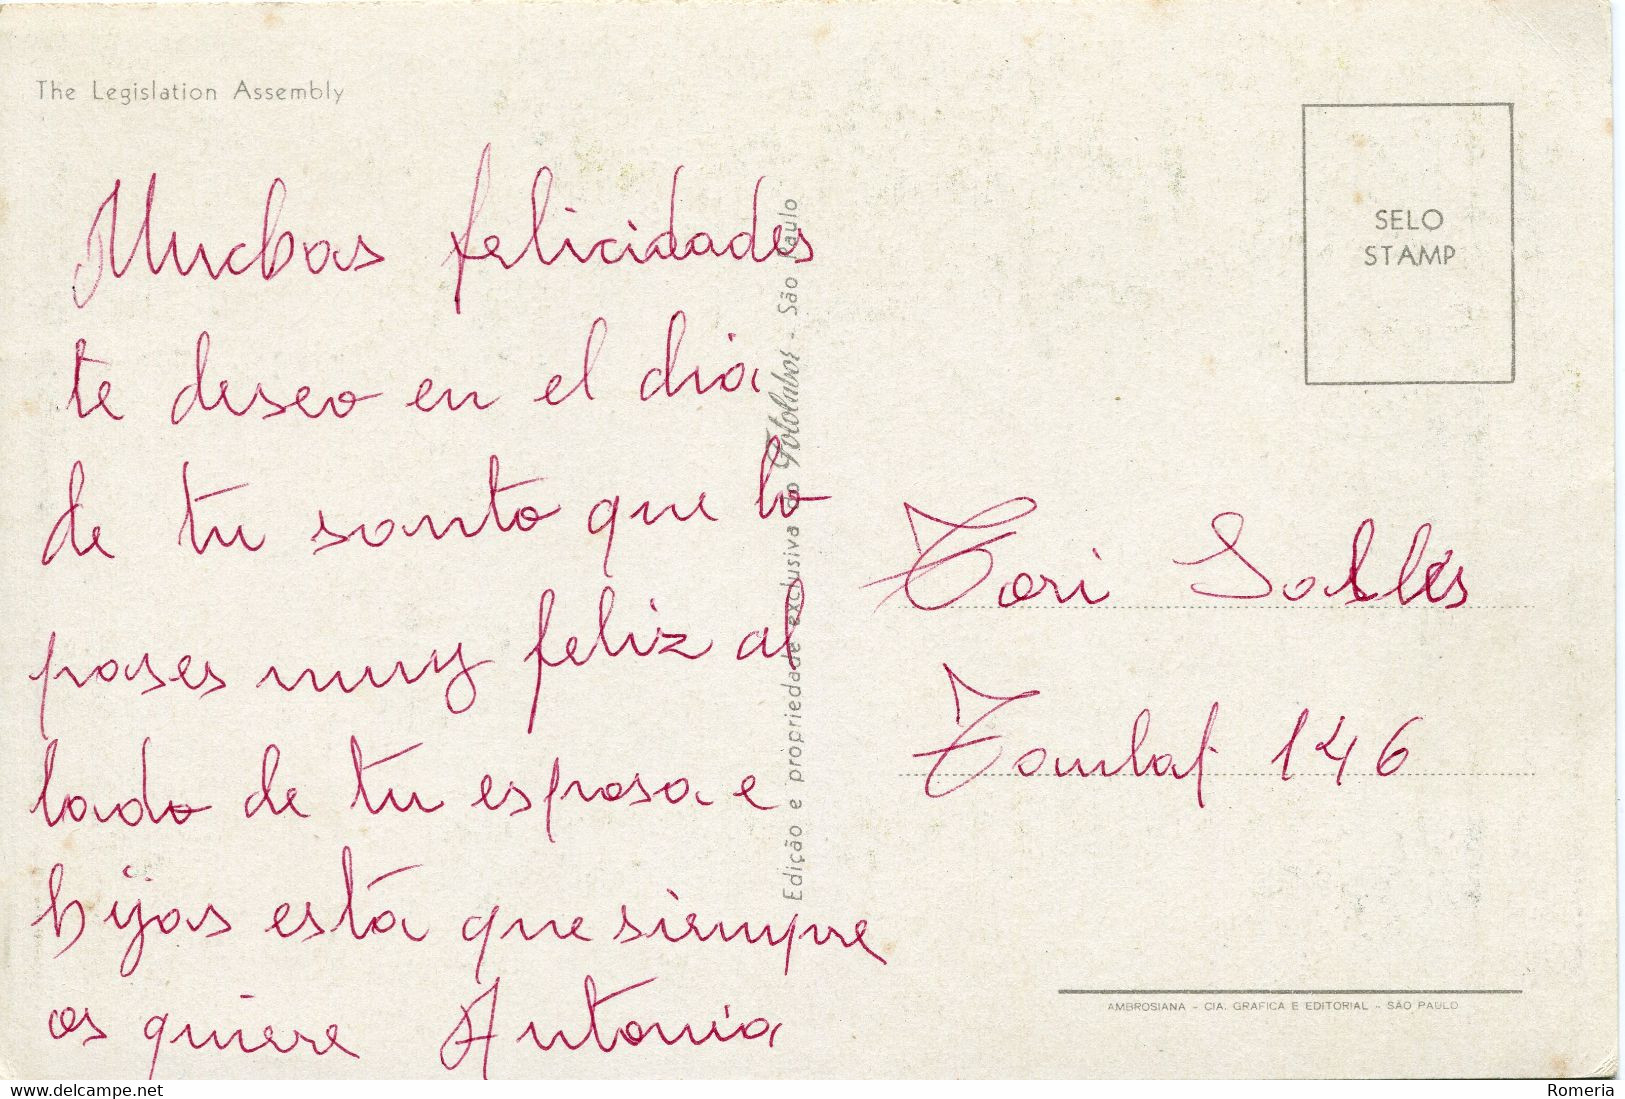 The Legislation Assembly
Muchas felicidades
te deseo en el dia
de tu santo que lo
pases muy feliz al
lado de tu esposa e
hijas está que siempre
os quiere Antonia
Edição e propriedade exclusiva do Fotolabor - São Paulo
SELO
STAMP
Tori
146
AMBROSIANA - CIA. GRAFICA E EDITORIAL - SÃO PAULO
www.delcampe.net
Romeria